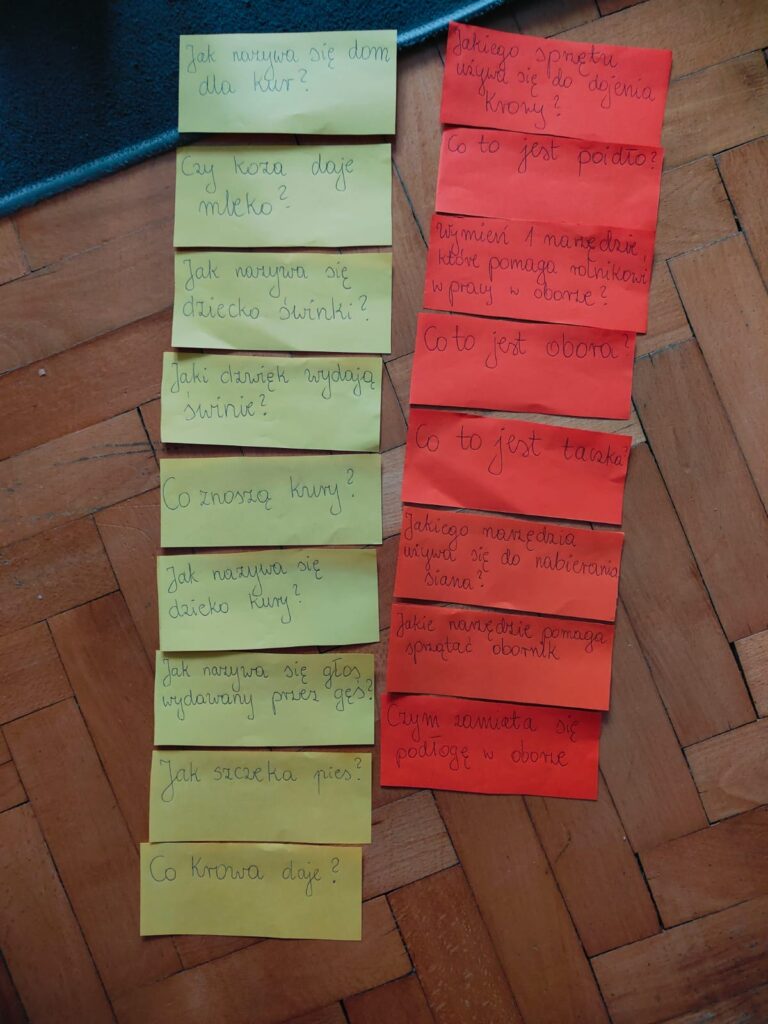 Jak nazywa się dom
dla kur?
Czy koza daje
mleko?
Jak nazywa się
dziecko świnki?
Jaki dzwięk wydają
świnie?
Co znoszą kury?
Jak nazywa się
dzieko kury?
Jak nazywa się głos
wydawany przez gęś?
Jak szczeka pies?
Co krowa daje?
Jakiego sprzętu
używa się do dojenia
krowy?
Co to jest poidło?
Wymień 1 narzędzie,
które pomaga rolnikowi
w pracy w oborze?
Co to jest obora?
Co to jest taczka?
Jakiego narzędzia
używa się do nabierania
siana?
Jakie narzędzie pomaga
sprzątać obornik
Czym zamiata się
podłogę w oborze